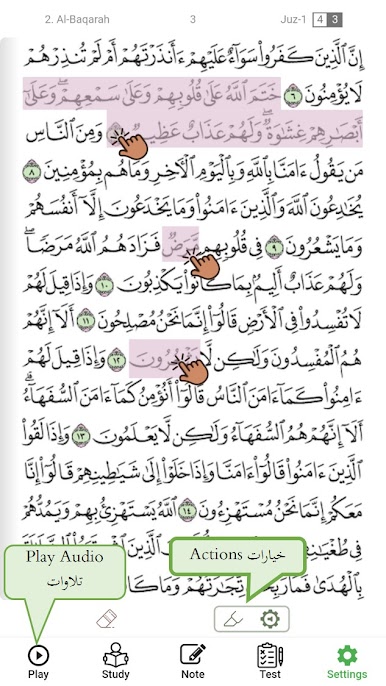 2. Al-Baqarah 3 Juz-1 4 3
إِنَّ ٱلَّذِينَ كَفَرُوا۟ سَوَآءٌ عَلَيْهِمْ ءَأَنذَرْتَهُمْ أَمْ لَمْ تُنذِرْهُمْ
لَا يُؤْمِنُونَ ٦ خَتَمَ ٱللَّهُ عَلَىٰ قُلُوبِهِمْ وَعَلَىٰ سَمْعِهِمْ ۖ وَعَلَىٰٓ
أَبْصَٰرِهِمْ غِشَٰوَةٌ ۖ وَلَهُمْ عَذَابٌ عَظِيمٌ وَمِنَ ٱلنَّاسِ
مَن يَقُولُ ءَامَنَّا بِٱللَّهِ وَبِٱلْيَوْمِ ٱلْءَاخِرِ وَمَا هُم بِمُؤْمِنِينَ ٨
يُخَٰدِعُونَ ٱللَّهَ وَٱلَّذِينَ ءَامَنُوا۟ وَمَا يَخْدَعُونَ إِلَّآ أَنفُسَهُمْ
وَمَا يَشْعُرُونَ ٩ فِى قُلُوبِهِم مَّرَضٌ فَزَادَهُمُ ٱللَّهُ مَرَضًا ۖ
وَلَهُمْ عَذَابٌ أَلِيمٌۢ بِمَا كَانُوا۟ يَكْذِبُونَ ١٠ وَإِذَا قِيلَ لَهُمْ
لَا تُفْسِدُوا۟ فِى ٱلْأَرْضِ قَالُوٓا۟ إِنَّمَا نَحْنُ مُصْلِحُونَ ١١ أَلَآ إِنَّهُمْ
هُمُ ٱلْمُفْسِدُونَ وَلَٰكِن لَّا يَشْعُرُونَ ١٢ وَإِذَا قِيلَ لَهُمْ
ءَامِنُوا۟ كَمَآ ءَامَنَ ٱلنَّاسُ قَالُوٓا۟ أَنُؤْمِنُ كَمَآ ءَامَنَ ٱلسُّفَهَآءُ ۗ
أَلَآ إِنَّهُمْ هُمُ ٱلسُّفَهَآءُ وَلَٰكِن لَّا يَعْلَمُونَ ١٣ وَإِذَا لَقُوا۟
ٱلَّذِينَ ءَامَنُوا۟ قَالُوٓا۟ ءَامَنَّا وَإِذَا خَلَوْا۟ إِلَىٰ شَيَٰطِينِهِمْ قَالُوٓا۟ إِنَّا
مَعَكُمْ إِنَّمَا نَحْنُ مُسْتَهْزِءُونَ ١٤ ٱللَّهُ يَسْتَهْزِئُ بِهِمْ وَيَمُدُّهُمْ
فِى ٱلَّذِينَ
بِٱلْهُدَىٰ فَمَا تِّجَٰرَتُهُمْ وَمَا
Play Audio
تلاوات
Actions خيارات
Play Study Note Test Settings